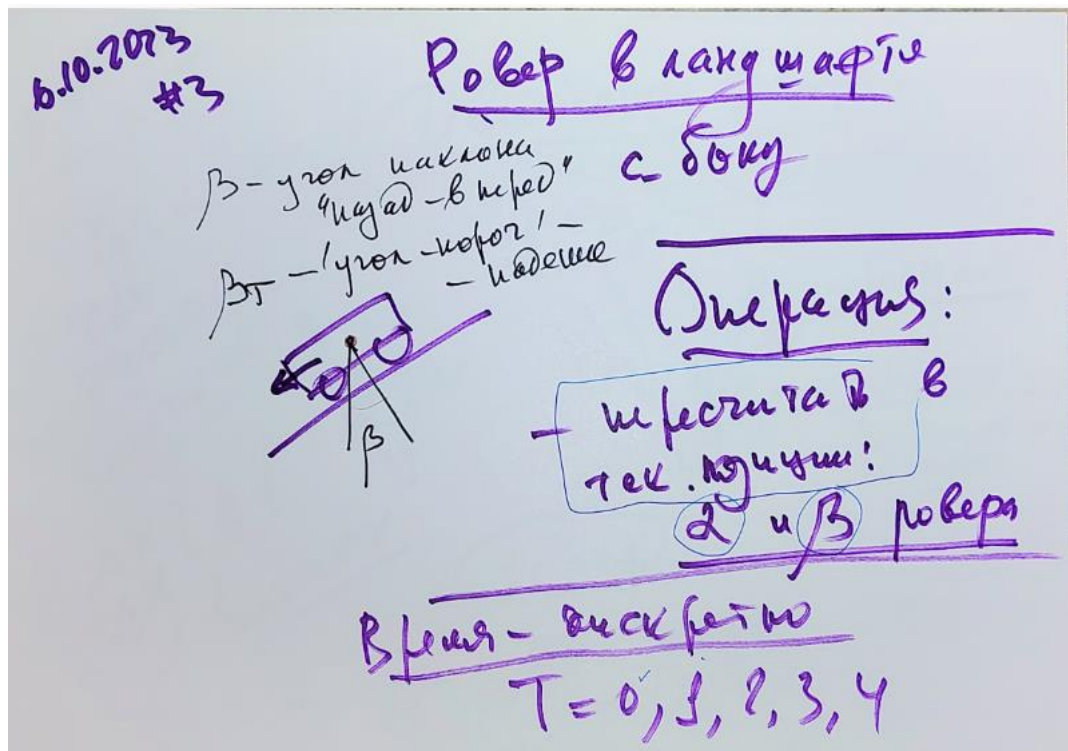 6.10.2023
#3
Ровер в ландшафтя
с боку
β - угол наклона
"назад - в перед"
βт - 'угол-порог' -
- падение
β
Операция:
- пересчитать в
тек. позиции:
α и β ровера
Время - дискретно
T = 0, 1, 2, 3, 4